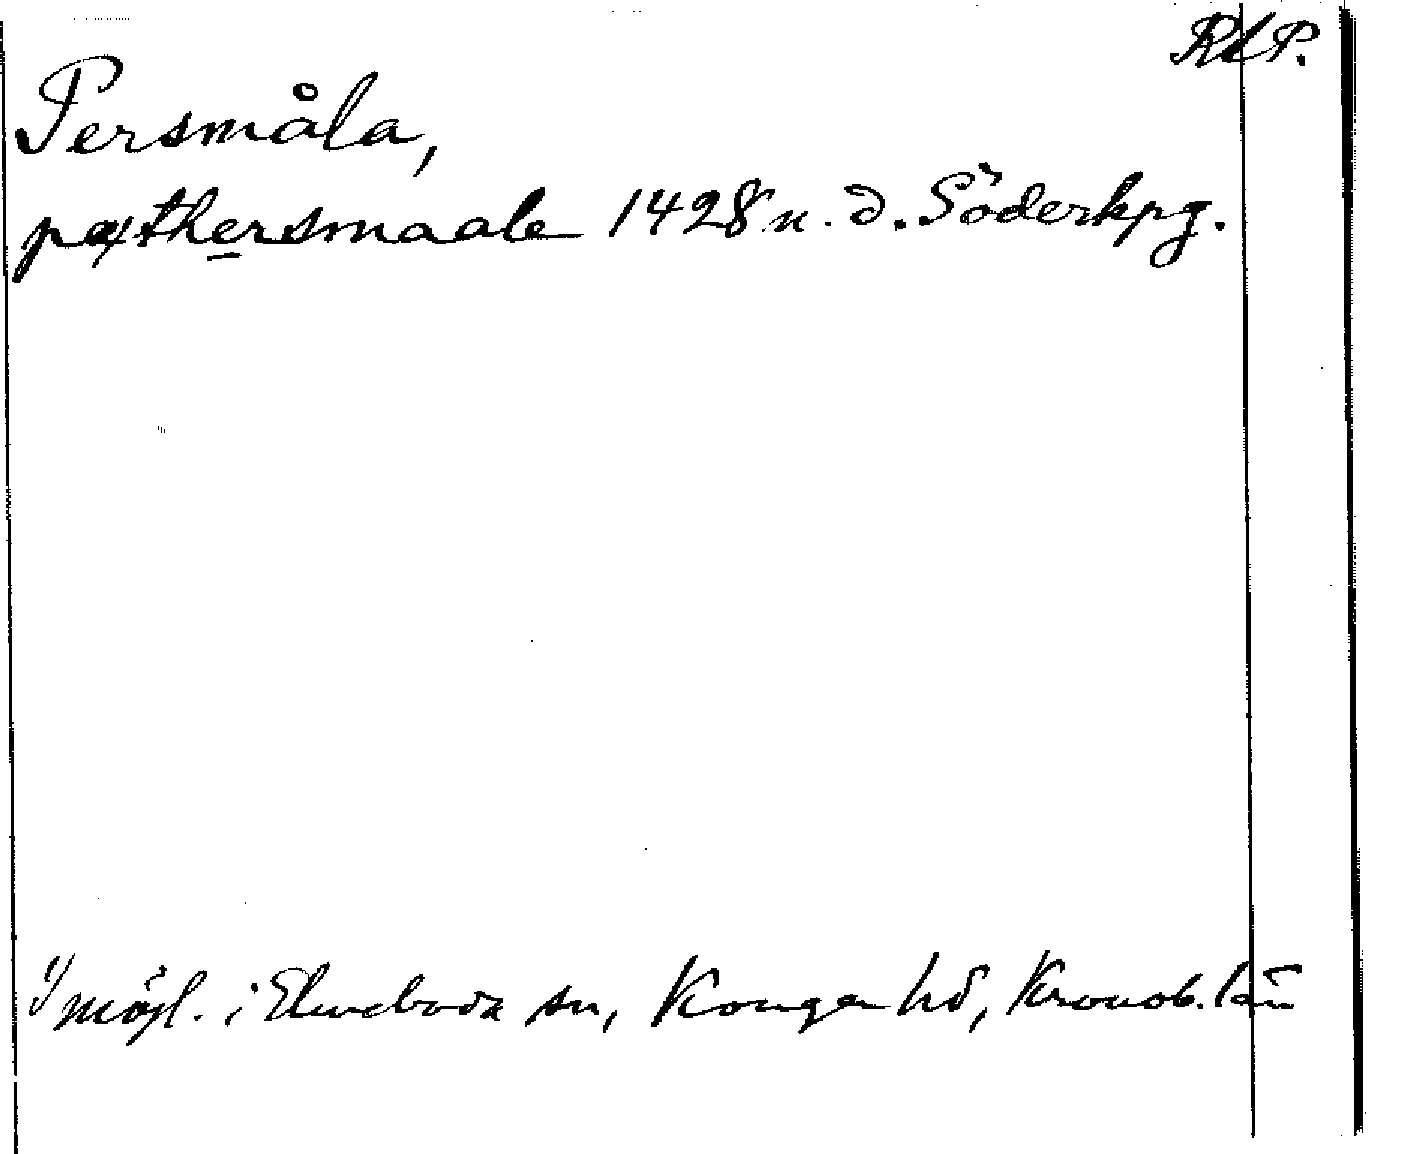 RAP.
Persmåla,
pæthersmaale 1428 n. d. Söderkpg.
1/ möjl. i Elmeboda sn, Konga hd, Kronob. län